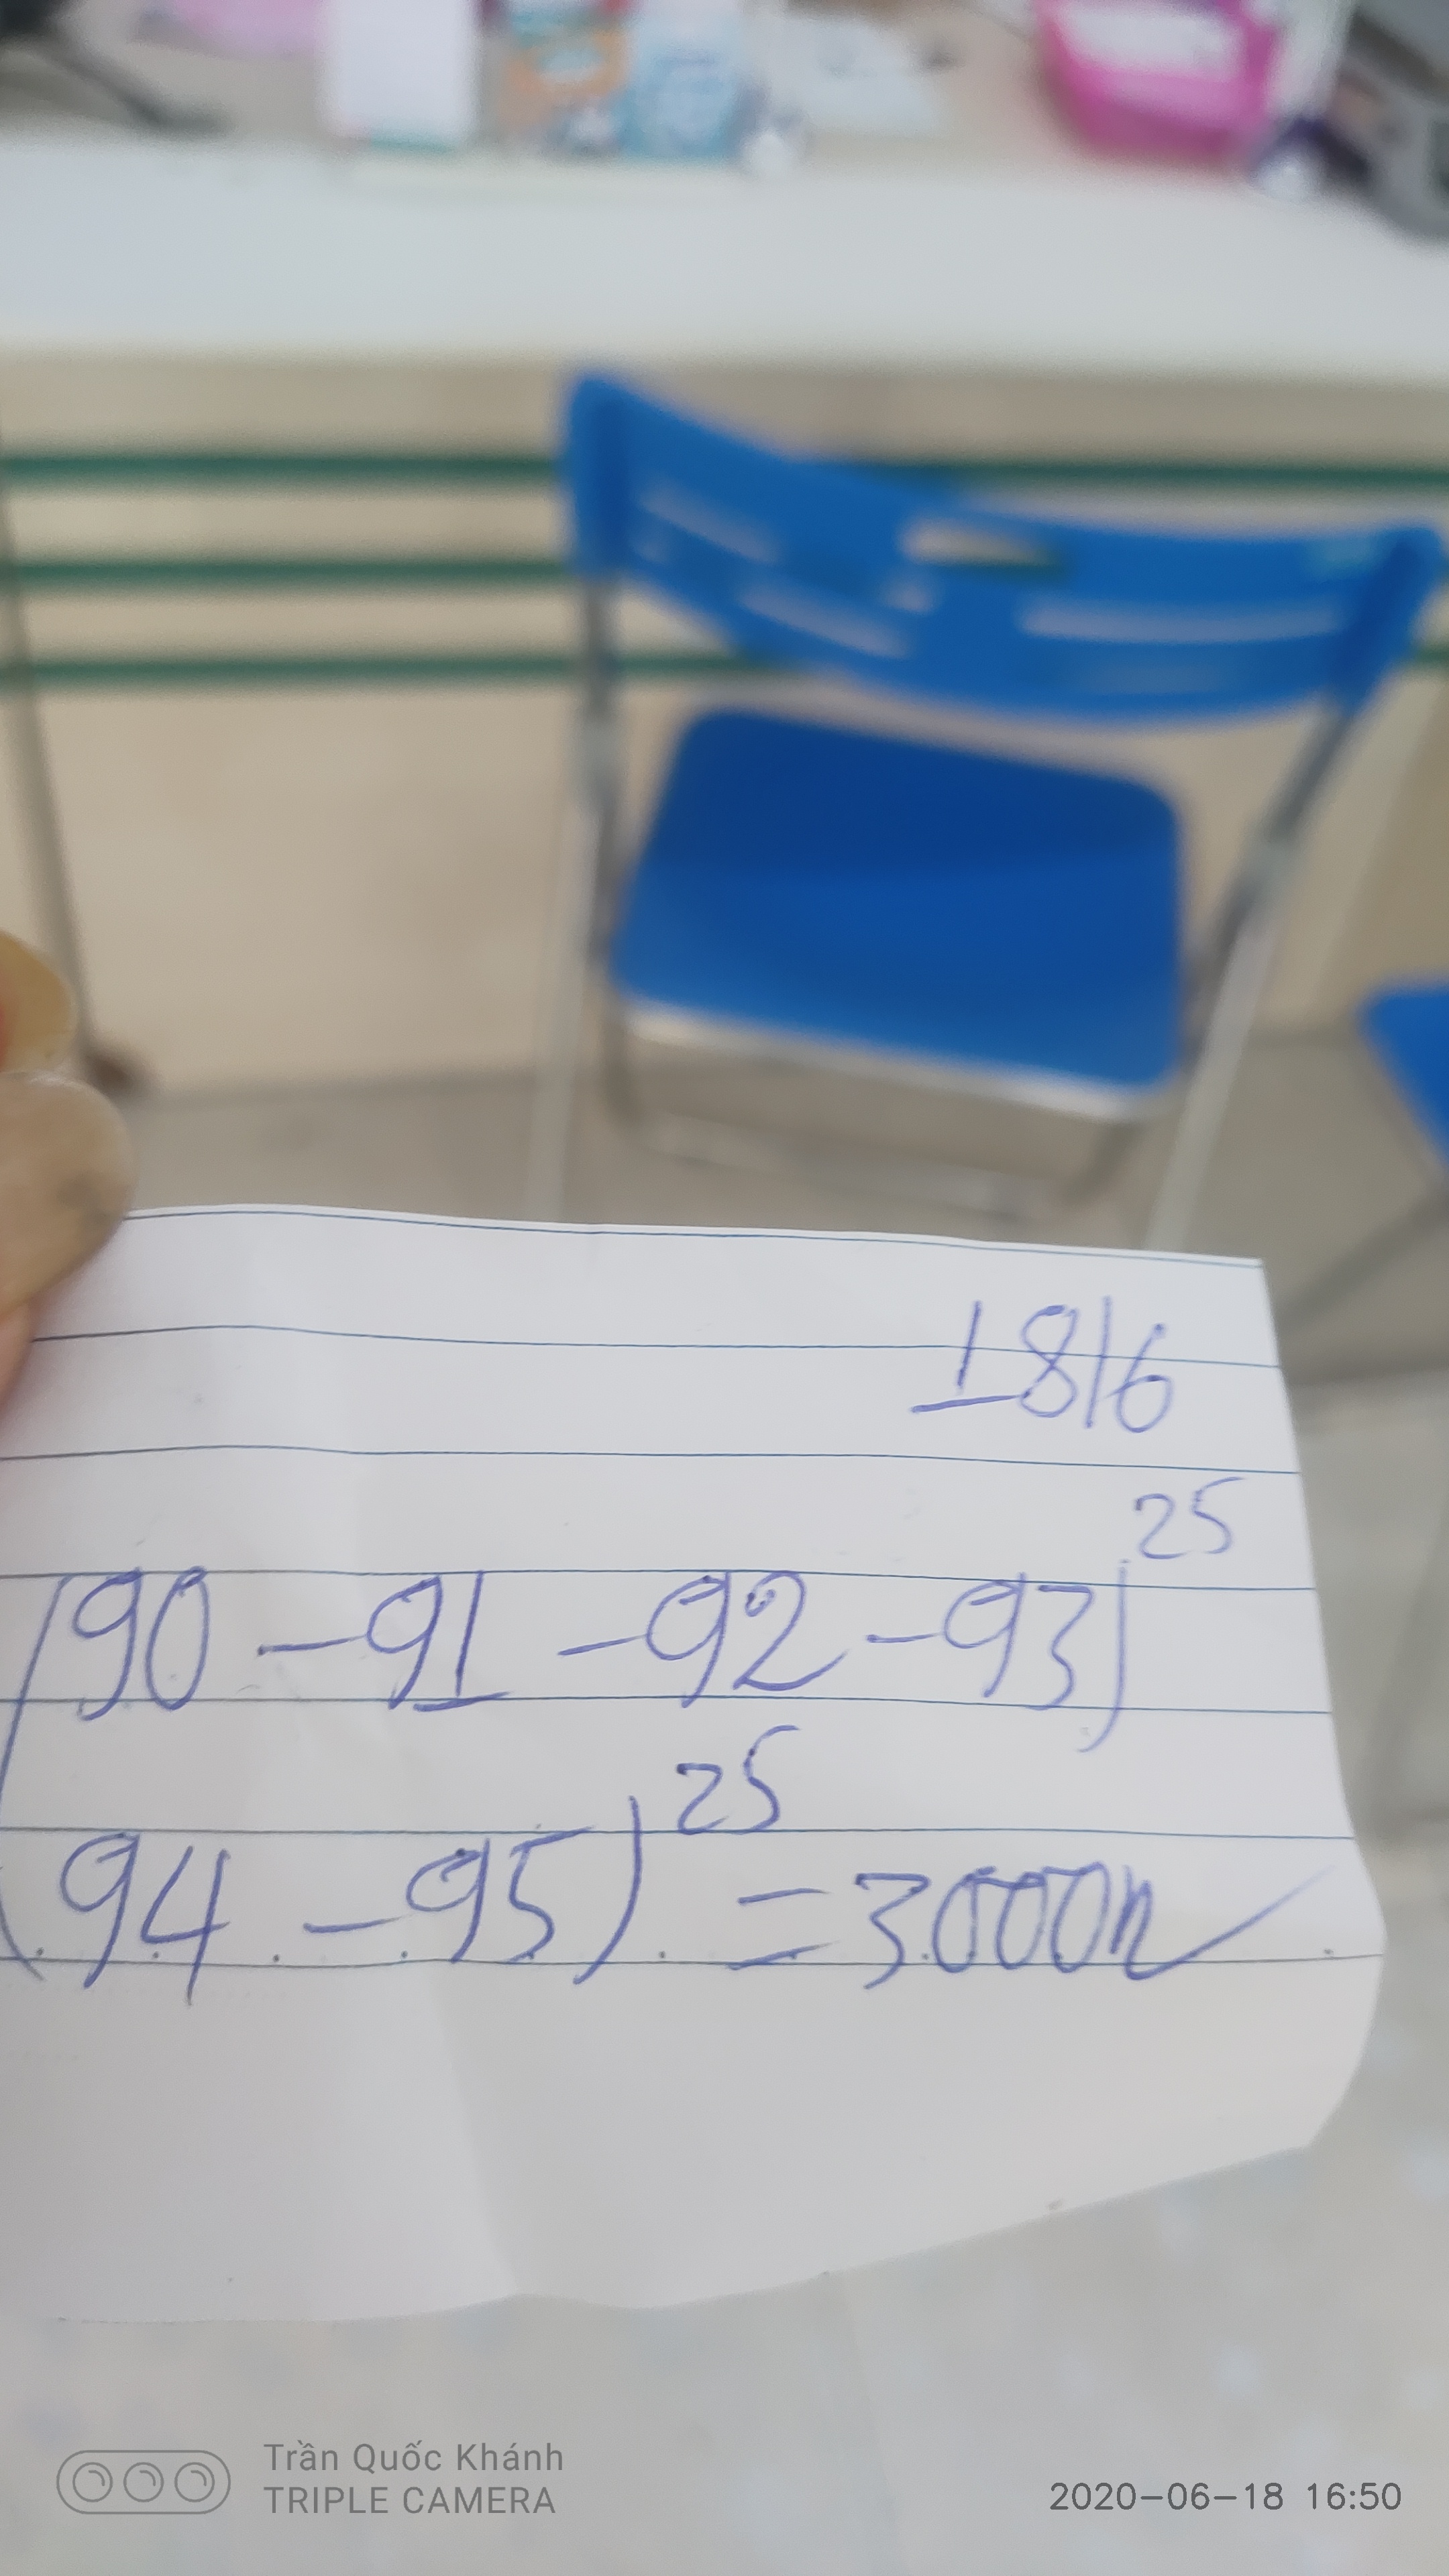 18/6
(90 - 91 - 92 - 93) 25
(94 - 95) 25 = 3.000n
Trần Quốc Khánh
TRIPLE CAMERA
2020-06-18 16:50